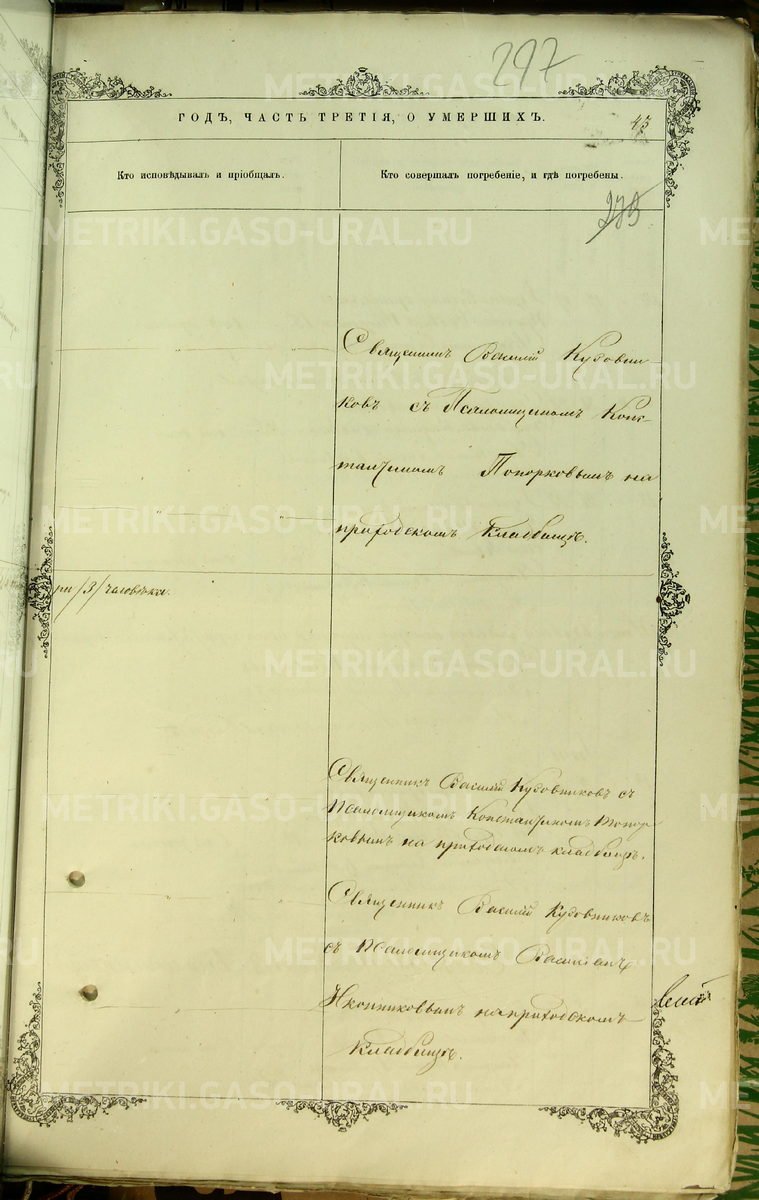 297
ГОДЪ, ЧАСТЬ ТРЕТІЯ, О УМЕРШИХЪ.
43
Кто исповѣдывалъ и пріобщалъ.
Кто совершалъ погребеніе, и гдѣ погребены.
Священникъ Василій Кудовни-
ковъ съ Псаломщикомъ Конс-
тантиномъ Попорковымъ на
приходскомъ кладбищѣ.
ри /3/ человѣка.
Священникъ Василій Кудовниковъ съ
Псаломщикомъ Константиномъ
ковымъ на приходскомъ кладбищѣ.
Священникъ Василій Кудовниковъ
съ Псаломщикомъ
Иконниковымъ на приходскомъ
кладбищѣ.
METRIKI.GASO-URAL.RU